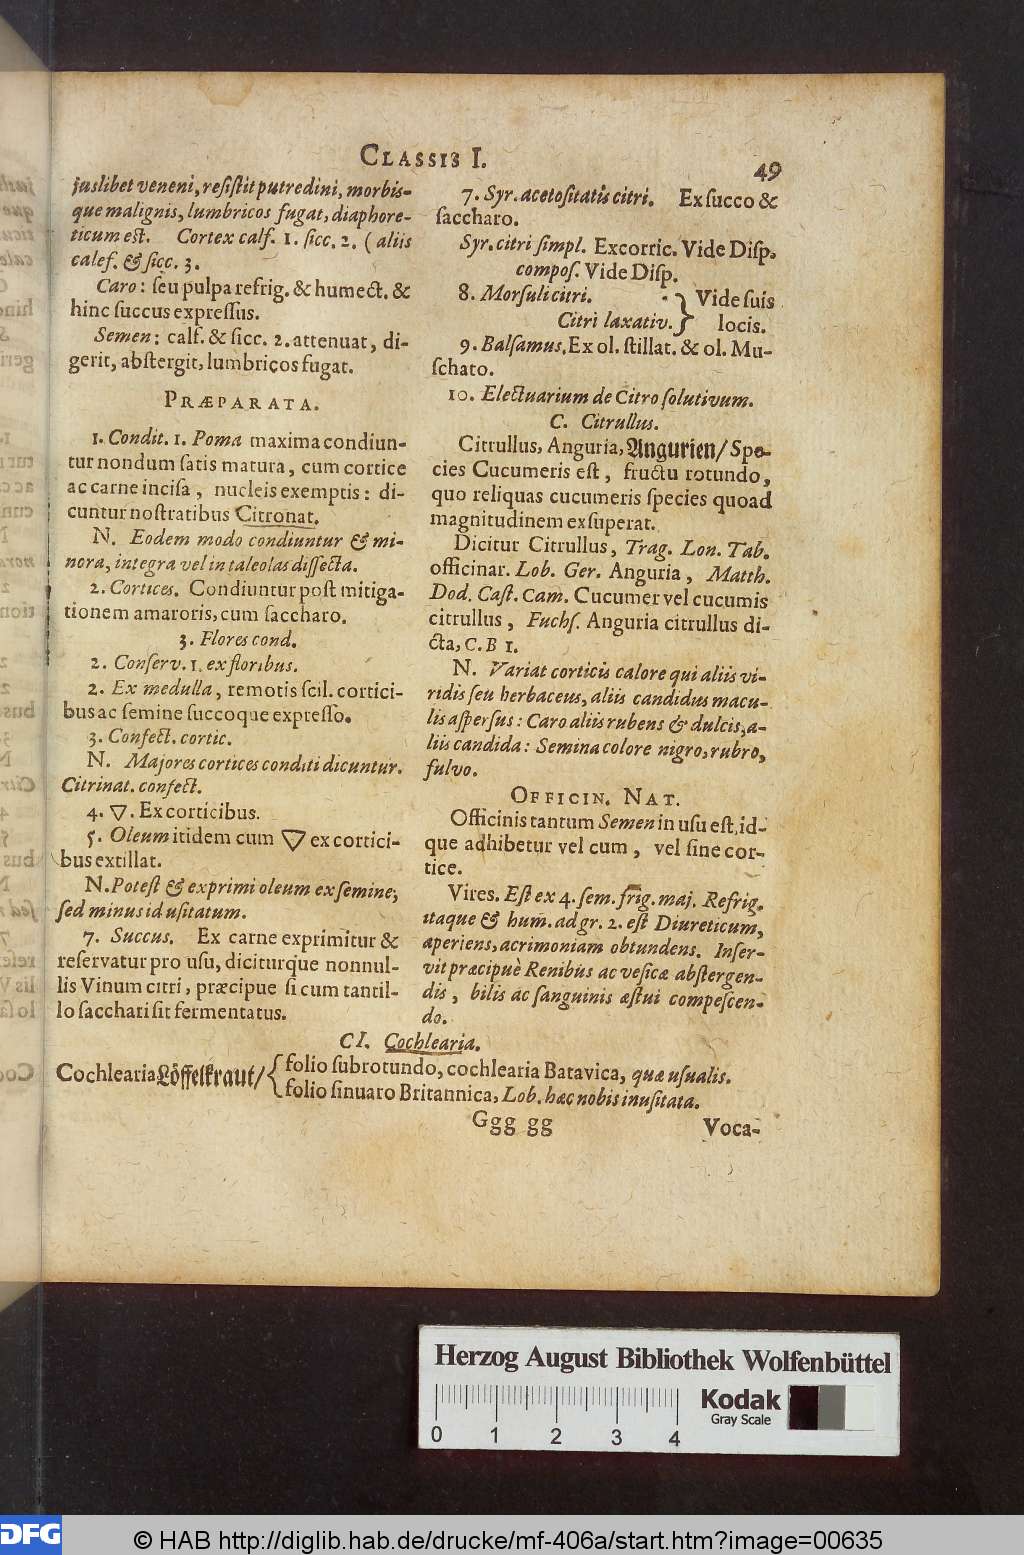 CLASSIS I.
49
juslibet veneni, resistit putredini, morbis-
que malignis, lumbricos fugat, diaphore-
ticum est. Cortex calf. 1. sicc. 2. (aliis
calef. & sicc. 3.
Caro: seu pulpa refrig. & humect. &
hinc succus expressus.
Semen: calf. & sicc. 2. attenuat, di-
gerit, abstergit, lumbricos fugat.
PRÆPARATA.
1. Condit. 1. Poma maxima condiun-
tur nondum satis matura, cum cortice
ac carne incisa, nucleis exemptis: di-
cuntur nostratibus Citronat.
N. Eodem modo condiuntur & mi-
nora, integra vel in taleolas dissecta.
2. Cortices. Condiuntur post mitiga-
tionem amaroris, cum saccharo.
3. Flores cond.
2. Conserv. 1. ex floribus.
2. Ex medulla, remotis scil. cortici-
bus ac semine succoque expresso.
3. Confect. cortic.
N. Majores cortices conditi dicuntur.
Citrinat. confect.
4. ▽. Ex corticibus.
5. Oleum itidem cum ▽ ex cortici-
bus extillat.
N. Potest & exprimi oleum ex semine;
sed minus id usitatum.
7. Succus. Ex carne exprimitur &
reservatur pro usu, diciturque nonnul-
lis Vinum citri, præcipue si cum tantil-
lo sacchari sit fermentatus.
7. Syr. acetositatis citri. Ex succo &
saccharo.
Syr. citri simpl. Ex cortic. Vide Disp.
compos. Vide Disp.
8. Morsuli citri. } Vide suis
Citri laxativ. } locis.
9. Balsamus. Ex ol. stillat. & ol. Mu-
schato.
10. Electuarium de Citro solutivum.
C. Citrullus.
Citrullus, Anguria, Angurien/ Spe-
cies Cucumeris est, fructu rotundo,
quo reliquas cucumeris species quoad
magnitudinem exsuperat.
Dicitur Citrullus, Trag. Lon. Tab.
officinar. Lob. Ger. Anguria, Matth.
Dod. Cast. Cam. Cucumer vel cucumis
citrullus, Fuchs. Anguria citrullus di-
cta, C. B 1.
N. Variat corticis calore qui aliis vi-
ridis seu herbaceus, aliis candidus macu-
lis aspersus: Caro aliis rubens & dulcis, a-
liis candida: Semina colore nigro, rubro,
fulvo.
OFFICIN. NAT.
Officinis tantum Semen in usu est, id-
que adhibetur vel cum, vel sine cor-
tice.
Vires. Est ex 4. sem. frig. maj. Refrig.
itaque & hum. ad gr. 2. est Diureticum,
aperiens, acrimoniam obtundens. Inser-
vit præcipuè Renibus ac vesicæ abstergen-
dis, bilis ac sanguinis æstui compescen-
do.
CI. Cochlearia.
Cochlearia Löffelkraut/ { folio subrotundo, cochlearia Batavica, quæ usualis.
folio sinuato Britannica, Lob. hæc nobis inusitata.
Ggg gg
Voca-
Herzog August Bibliothek Wolfenbüttel
Kodak
Gray Scale
0 1 2 3 4
DFG
© HAB http://diglib.hab.de/drucke/mf-406a/start.htm?image=00635